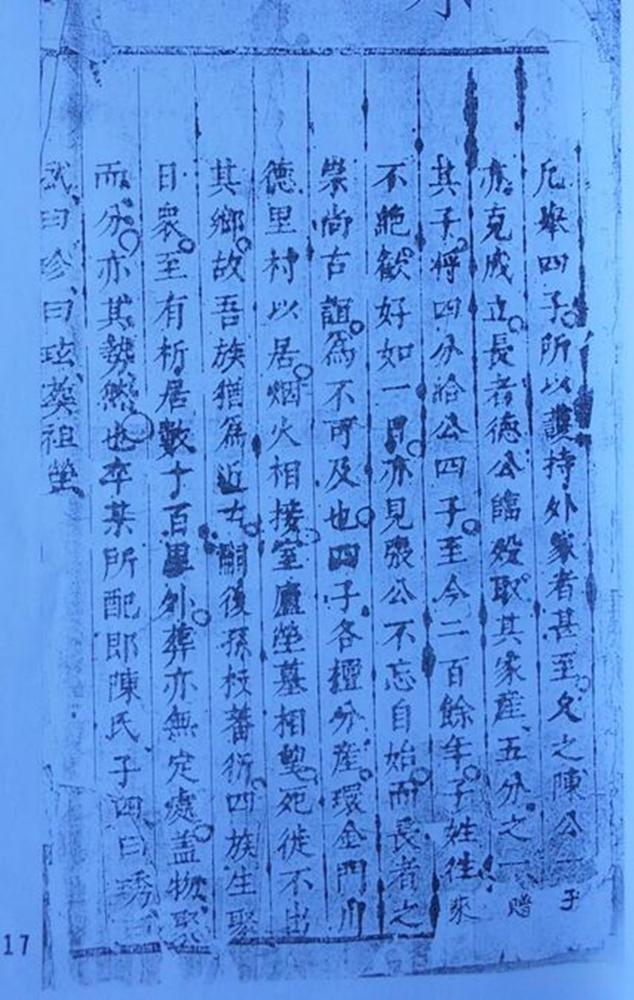 凡舉四子所以護持外家者甚至久之陳公一子
亦克成立長者德公臨歿取其家產五分之一贈
其子將四分給公四子至今二百餘年子姓往來
不絕歡好如一日亦見張公不忘自始而長者之
崇尚古誼為不可及也四子各擅分產環金門川
德里村以居烟火相接室廬塋墓相望死徙不出
其鄉故吾族猶為近古嗣後孫枝蕃衍四族生聚
日眾至有析居數十百里外葬亦無定處蓋物聚
而分亦其勢然也卒某所配即陳氏子四曰琇曰
武曰珍曰玹葬祖塋
17